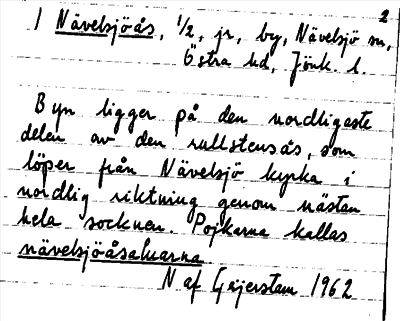 2
1 Nävelsjöås, 1/2, jr, by, Nävelsjö sn,
Östra hd, Jönk. l.
Byn ligger på den nordligaste
delen av den rullstensås, som
löper från Nävelsjö kyrka i
nordlig riktning genom nästan
hela socknen. Pojkarna kallas
nävelsjöåsaluarna
N af Geijerstam 1962